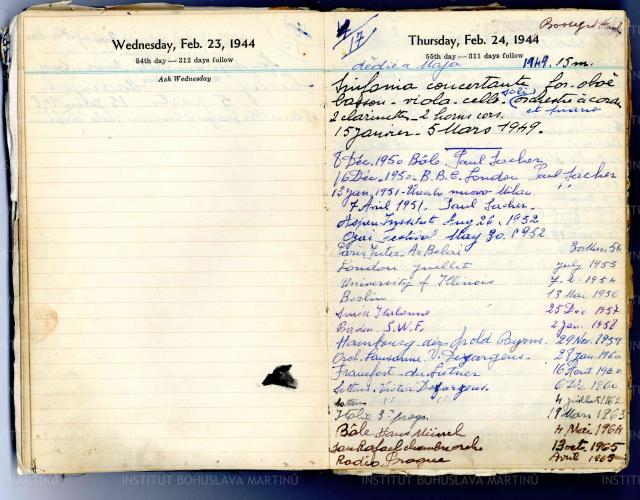 Wednesday, Feb. 23, 1944
54th day — 312 days follow
Ash Wednesday
4/17
Thursday, Feb. 24, 1944
55th day — 311 days follow
dédié a Maja 1949. 15 m.
Sinfonia concertante for oboè
basson - viola - cello (soli) orchestre à cordes
2 clarinettes - 2 horns cors. et piano
15 janvier - 5 Mars 1949.
8 Déc. 1950 Bâle Paul Sacher
16 Déc. 1950. B.B.C. London Paul Sacher
13 jan. 1951 - Theatre nuovo Milan "
7 Avril 1951. Paul Sacher.
Aspen Institut Aug 26. 1952
Ojai Festival May 30. 1952
Paris Inter. 30 Mars 53
London juillet july 1953
University of Illinois 7.2.1954
Berlin 13 Mai 1956
Suisse Italienne 25 Déc 1957
Baden. S.W.F. 2 jan. 1958
Hambourg 29 Nov. 1959
Orch. Lausanne. V. Desarzens. 28 jan. 1960
Francfort 16 Août 1960
Sottens - Victor Desarzens. 6 Déc 1960
Sottens " " 4 juillet 1962
Italie 3e progr. 19 Mars 1963
Bâle Hans Münch 4 Mai 1964
San Rafael chambre orch 13 oct. 1965
Radio Prague Avril 1965
INSTITUT BOHUSLAVA MARTINŮ
INSTITUT BOHUSLAVA MARTINŮ